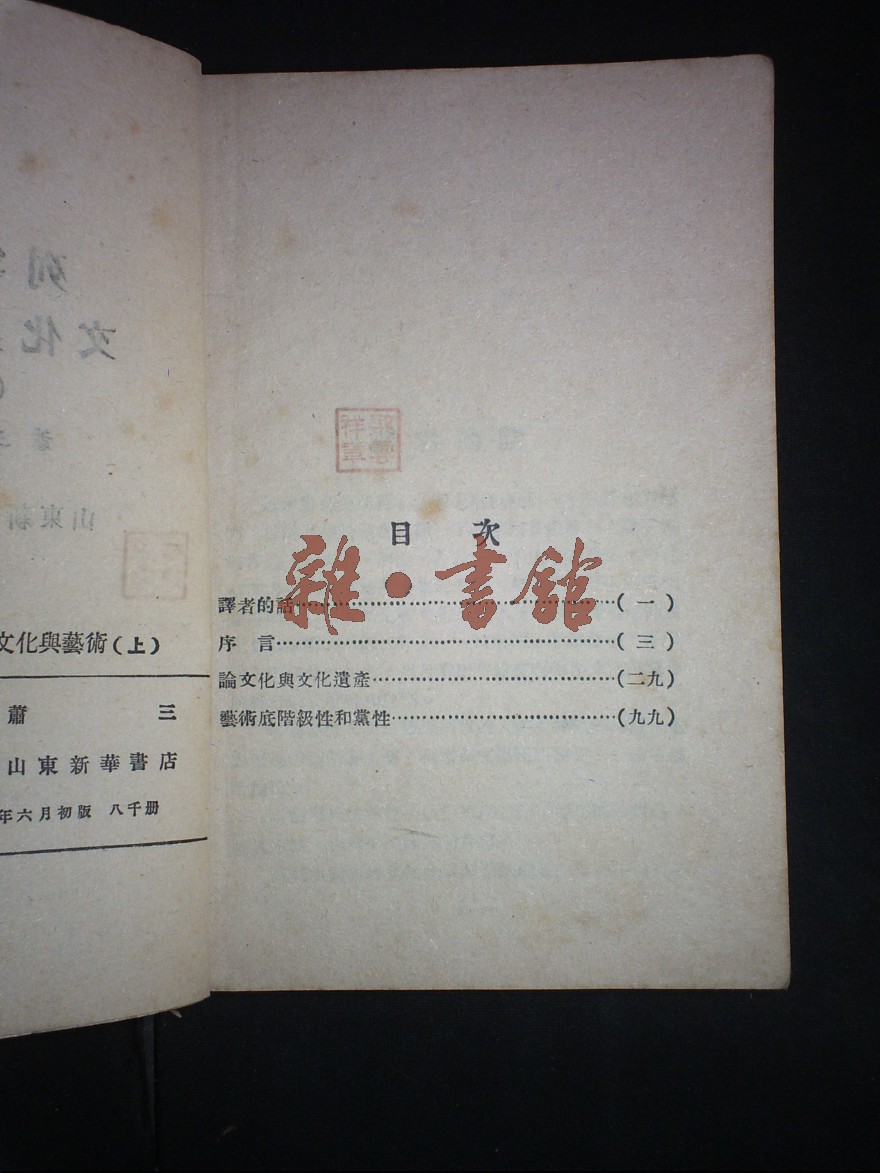 目 次
譯者的話……………………………………………(一)
序 言……………………………………………(三)
論文化與文化遺產………………………………(二九)
藝術底階級性和黨性……………………………(九九)
雜·書館
文化與藝術(上)
蕭 三
山東新華書店
年六月初版 八千册